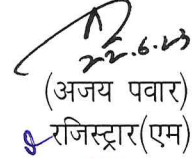 22.6.23
(अजय पवार)
रजिस्ट्रार(एम)